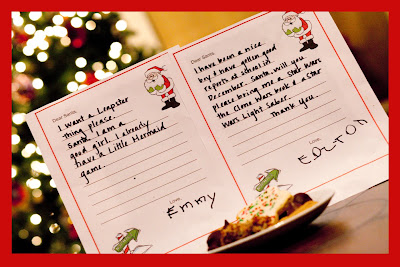 Dear Santa,
I want a Leapster
thing please.
Santa, I am a
good girl. I already
have a Little Mermaid
game.
Love,
Emmy
Dear Santa,
I have been a nice
boy I have gotten good
reports at school in
December. Santa, will you
please bring me a Star Wars
the Clone Wars book & a Star
Wars Light Saber.
Thank you.
Love,